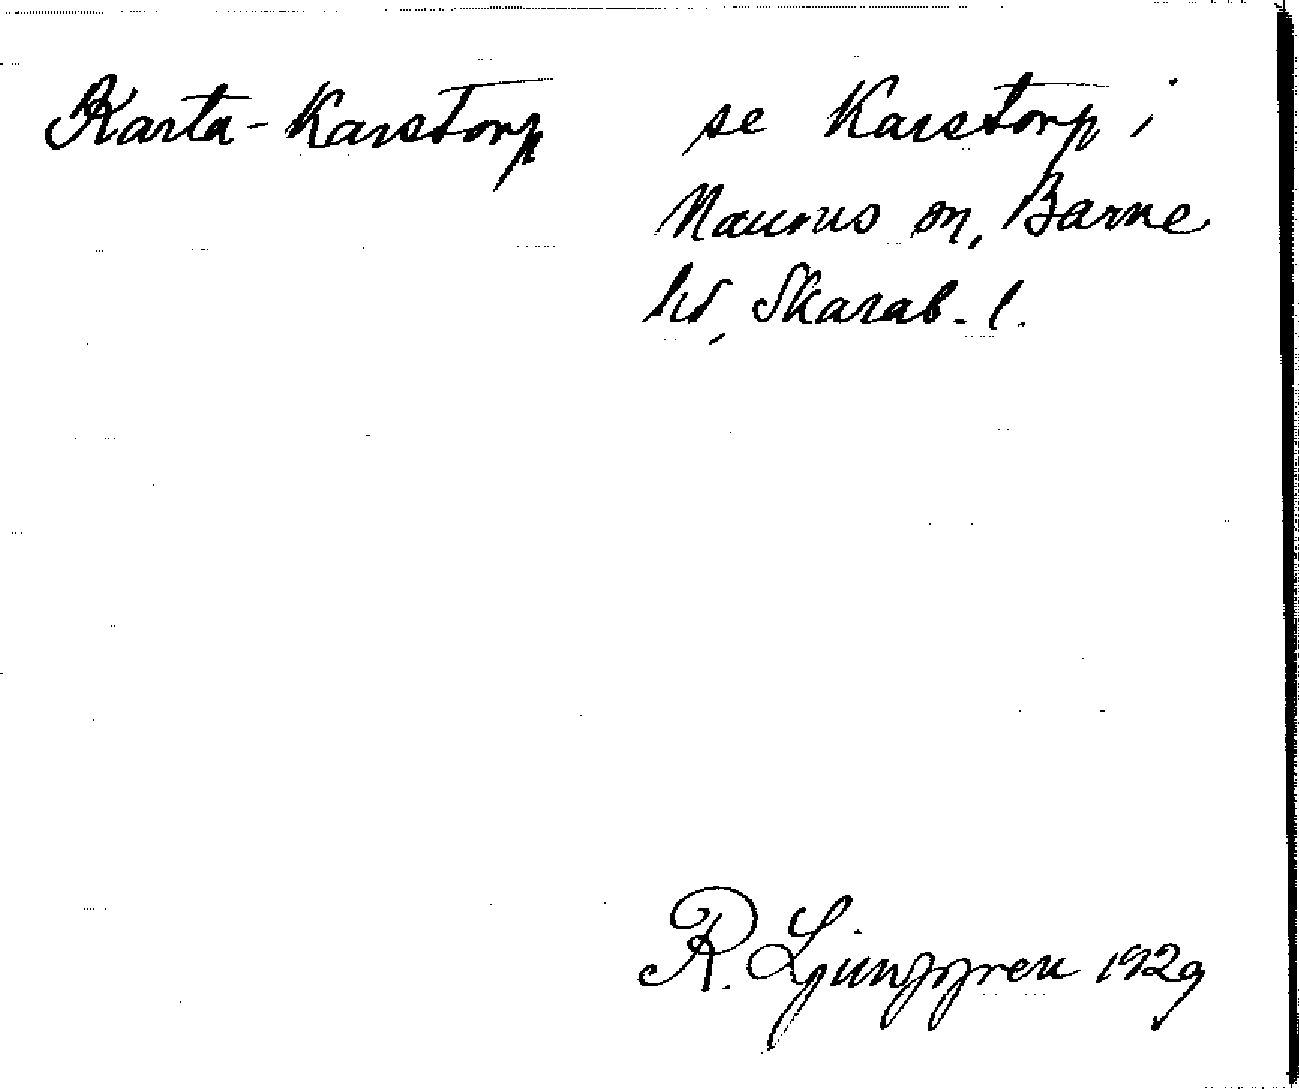 Karta-Karstorp se Karstorp i
Naums sn, Barne
hd, Skarab. l.
R. Ljunggren 1929